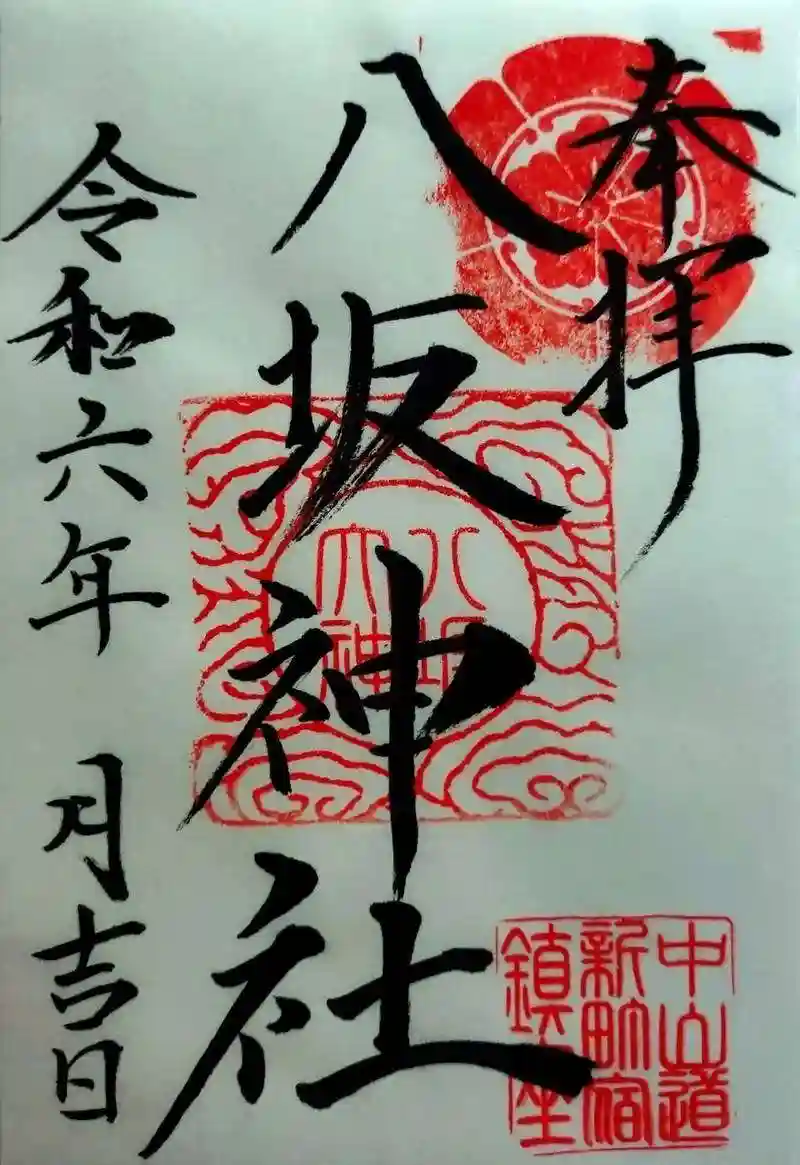 奉拝
八坂神社
令和六年 月吉日
八坂
大神
中山道
新町宿
鎮座